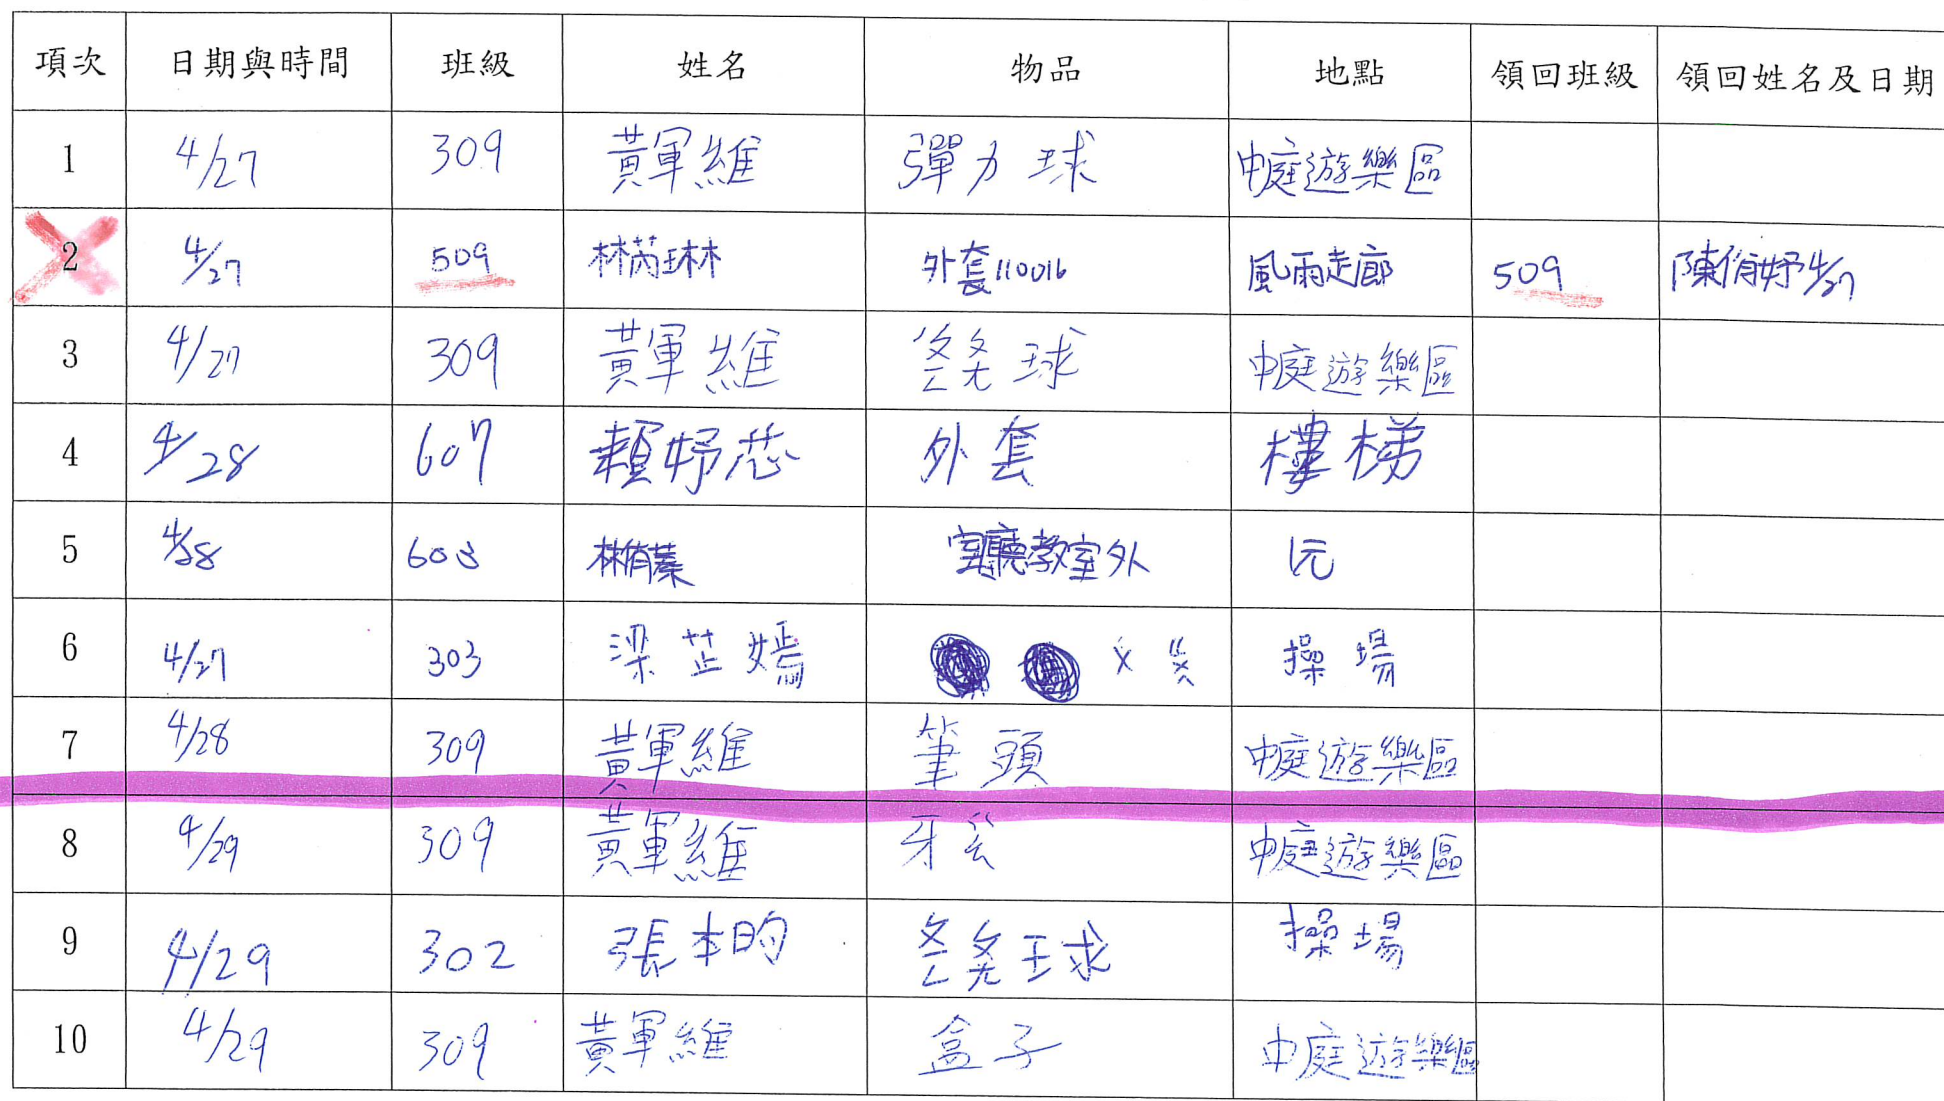 項次 日期與時間 班級 姓名 物品 地點 領回班級 領回姓名及日期
1 4/27 309 黃軍維 彈力球 中庭遊樂區
2 4/27 509 林芮琳 外套110016 風雨走廊 509 陳侑妤4/27
3 4/27 309 黃軍維 ㄆㄆ球 中庭遊樂區
4 4/28 607 賴妤芯 外套 樓梯
5 4/28 603 林侑蓁 教室外 1元
6 4/27 303 梁芷嫣 操場
7 4/28 309 黃軍維 筆頭 中庭遊樂區
8 4/29 309 黃軍維 牙 中庭遊樂區
9 4/29 302 張本昀 球 操場
10 4/29 309 黃軍維 盒子 中庭遊樂區